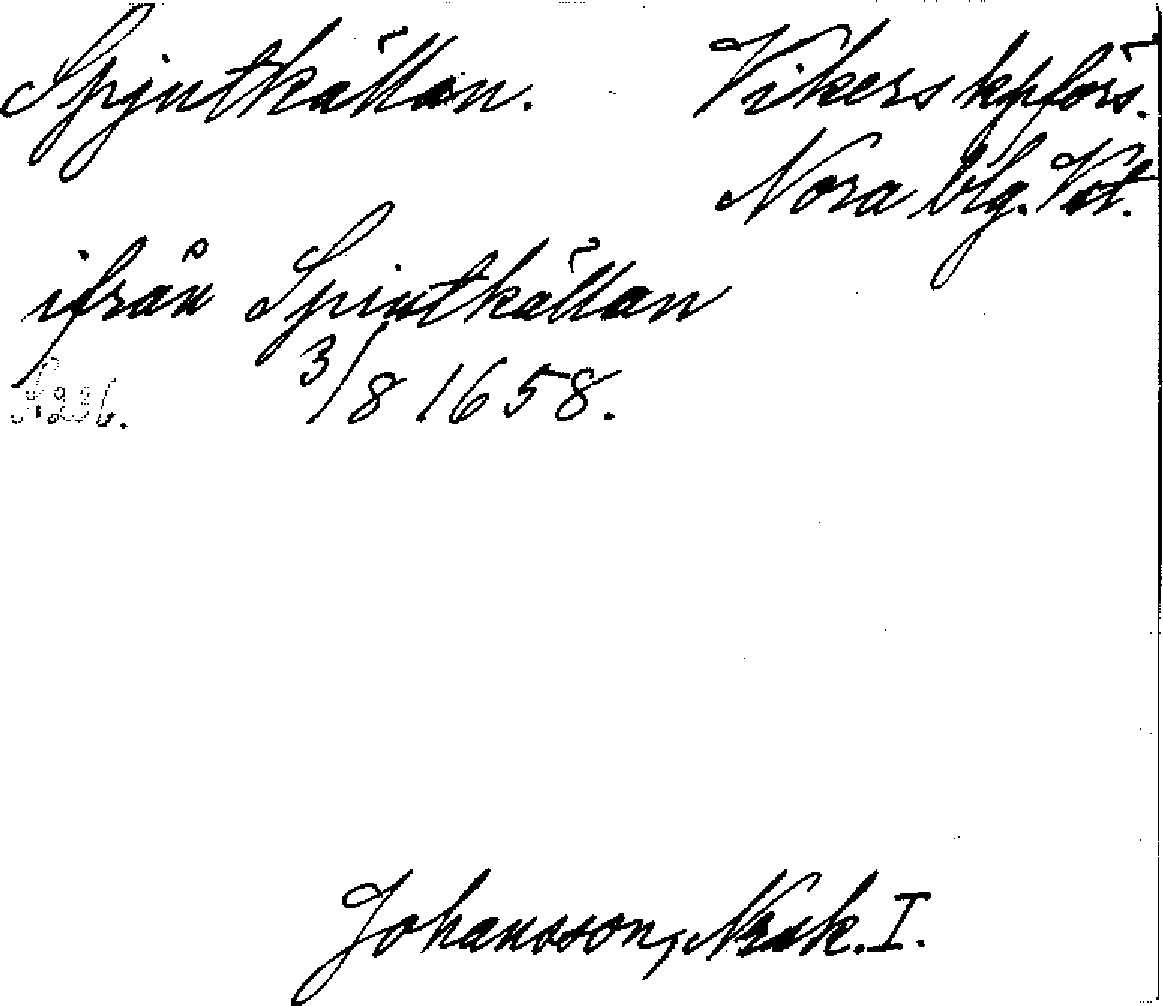 Spjutkällan. Vikers kpförs.
Nora blg. Vstm.
ifrån Spiutkällan
3/8 1658.
S. 236.
Johansson, Norask. I.